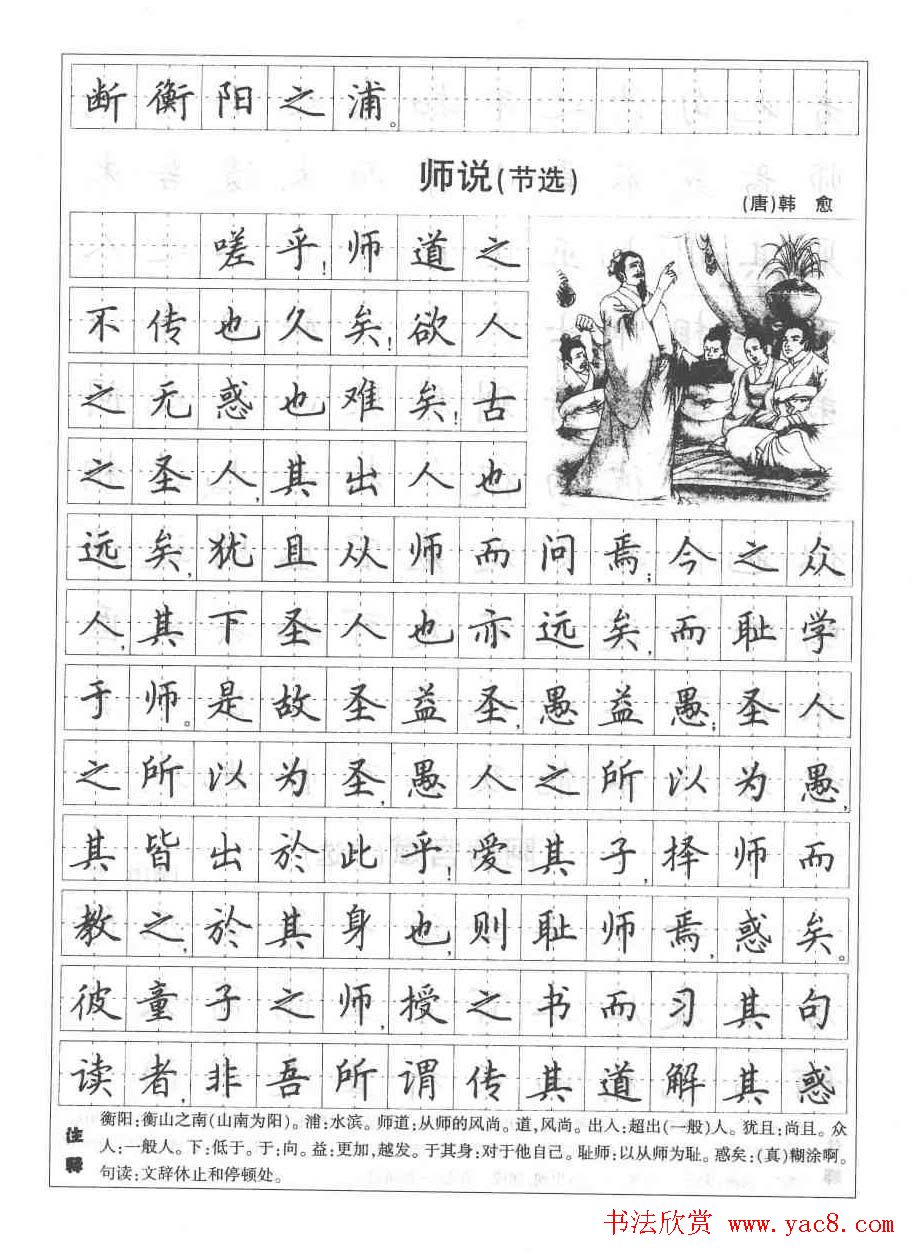 断衡阳之浦。
师说(节选)
(唐)韩 愈
嗟乎!师道之
不传也久矣!欲人
之无惑也难矣!古
之圣人,其出人也
远矣,犹且从师而问焉;今之众
人,其下圣人也亦远矣,而耻学
于师。是故圣益圣,愚益愚;圣人
之所以为圣,愚人之所以为愚,
其皆出於此乎!爱其子,择师而
教之,於其身也,则耻师焉,惑矣。
彼童子之师,授之书而习其句
读者,非吾所谓传其道解其惑
注释
衡阳:衡山之南(山南为阳)。浦:水滨。师道:从师的风尚。道,风尚。出人:超出(一般)人。犹且:尚且。众
人:一般人。下:低于。于:向。益:更加,越发。于其身:对于他自己。耻师:以从师为耻。惑矣:(真)糊涂啊。
句读:文辞休止和停顿处。
书法欣赏 www.yac8.com